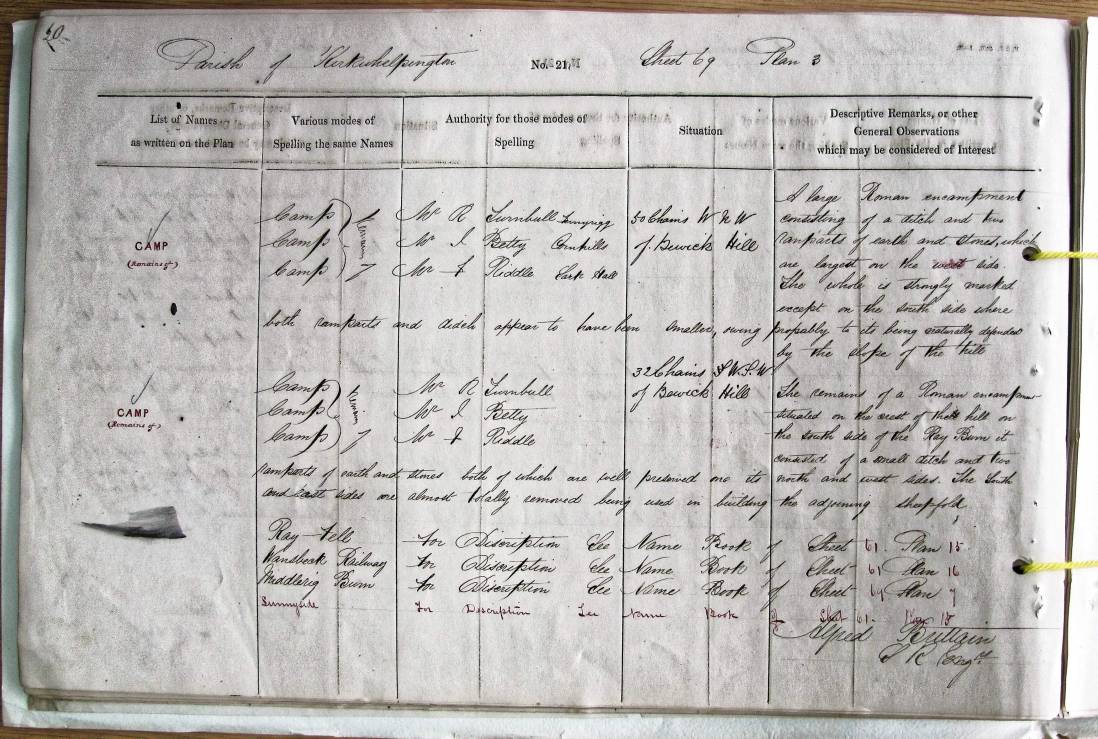 20
Parish of Kirkwhelpington No. 21. Sheet 69 Plan 3
List of Names as written on the Plan
Various modes of Spelling the same Names
Authority for those modes of Spelling
Situation
Descriptive Remarks, or other General Observations which may be considered of Interest
A large Roman encampment
Camp Mr R Turnbull 50 Chains W N W consisting of a ditch and two
CAMP Camp Mr I Betty Cornhills of Bewick Hill ramparts of earth and stones, which
(Remains of) Camp Mr Riddle Lark Hall are largest on the west side.
The whole is strongly marked
except on the south side where
both ramparts and ditch appear to have been smaller, owing propably to its being naturally defended
by the slope of the hill
32 Chains W.S.W
Camp Mr R Turnbull of Bewick Hill The remains of a Roman encampment
CAMP Camp Mr I Betty situated on the crest of the hill on
(Remains of) Camp Mr Riddle the south side of the Ray Burn it
consisted of a small ditch and two
ramparts of earth and stones both of which are well preserved on its north and west sides. The South
and east sides are almost totally removed being used in building the adjoining sheepfold,
Ray Fell For Discription See Name Book of Sheet 61. Plan 15
Wansbeck Railway for Discription See Name Book of Sheet 61 Plan 16
Middlerig Burn for Discription See Name Book of Sheet 69 Plan 7
Sunnyside For Description See Name Book of Sheet 61. Plan 15
Alfred Brittain